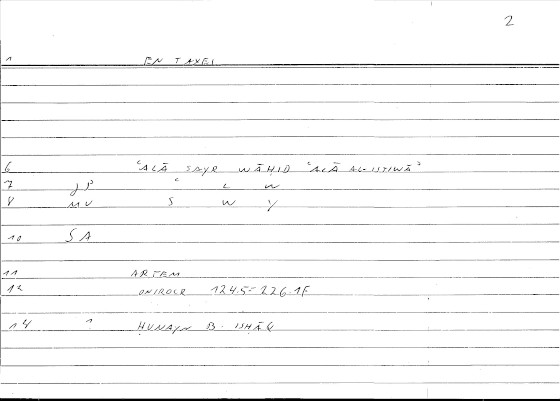 2
1 EN TAXEI
6 ʿALĀ SAYR WĀHID ʿALĀ AL-ISTIWĀʾ
7 JP ʿ L W
8 MV S W Y
10 SA
11 ARTEM
12 ONIROCR 124.5-226.1F
14 1 ḤUNAYN B. ISḤĀQ